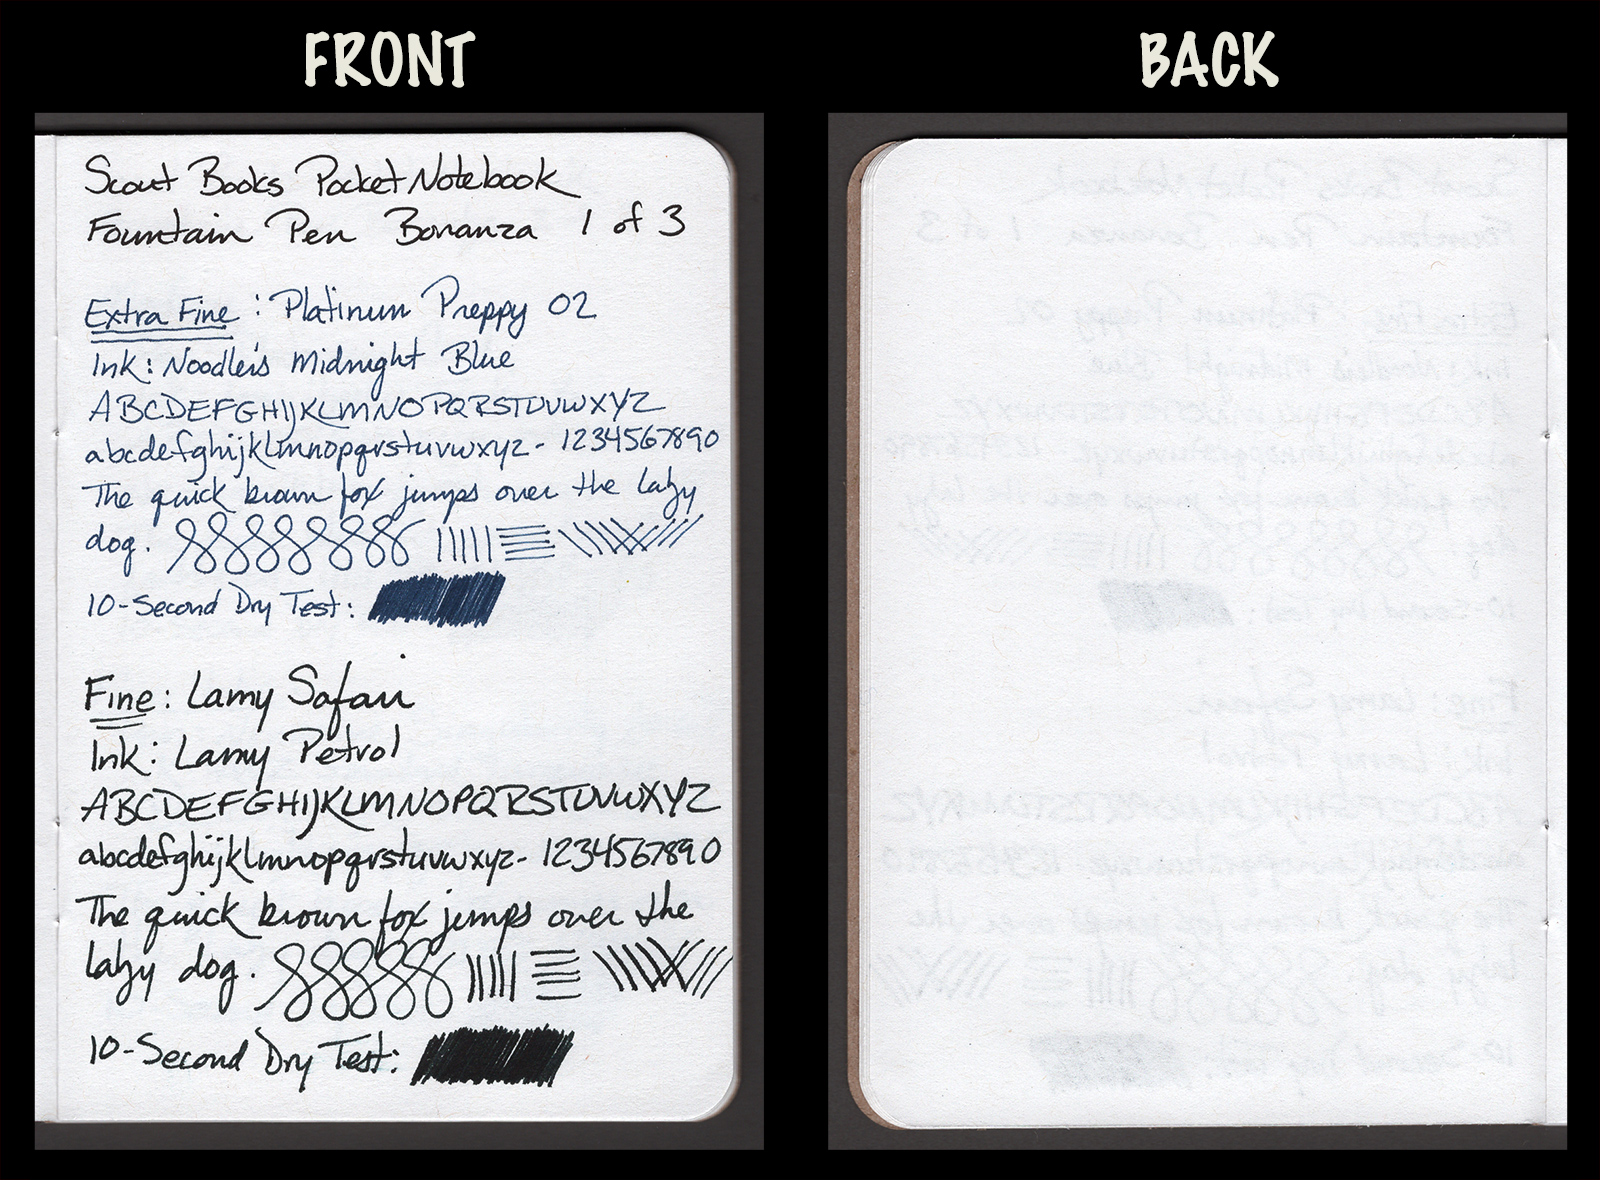 FRONT
Scout Books Pocket Notebook
Fountain Pen Bonanza 1 of 3
Extra Fine: Platinum Preppy 02
Ink: Noodler's Midnight Blue
ABCDEFGHIJKLMNOPQRSTUVWXYZ
abcdefghijklmnopqrstuvwxyz - 1234567890
The quick brown fox jumps over the lazy
dog.
10-Second Dry Test:
Fine: Lamy Safari
Ink: Lamy Petrol
ABCDEFGHIJKLMNOPQRSTUVWXYZ
abcdefghijklmnopqrstuvwxyz - 1234567890
The quick brown fox jumps over the
lazy dog.
10-Second Dry Test:
BACK